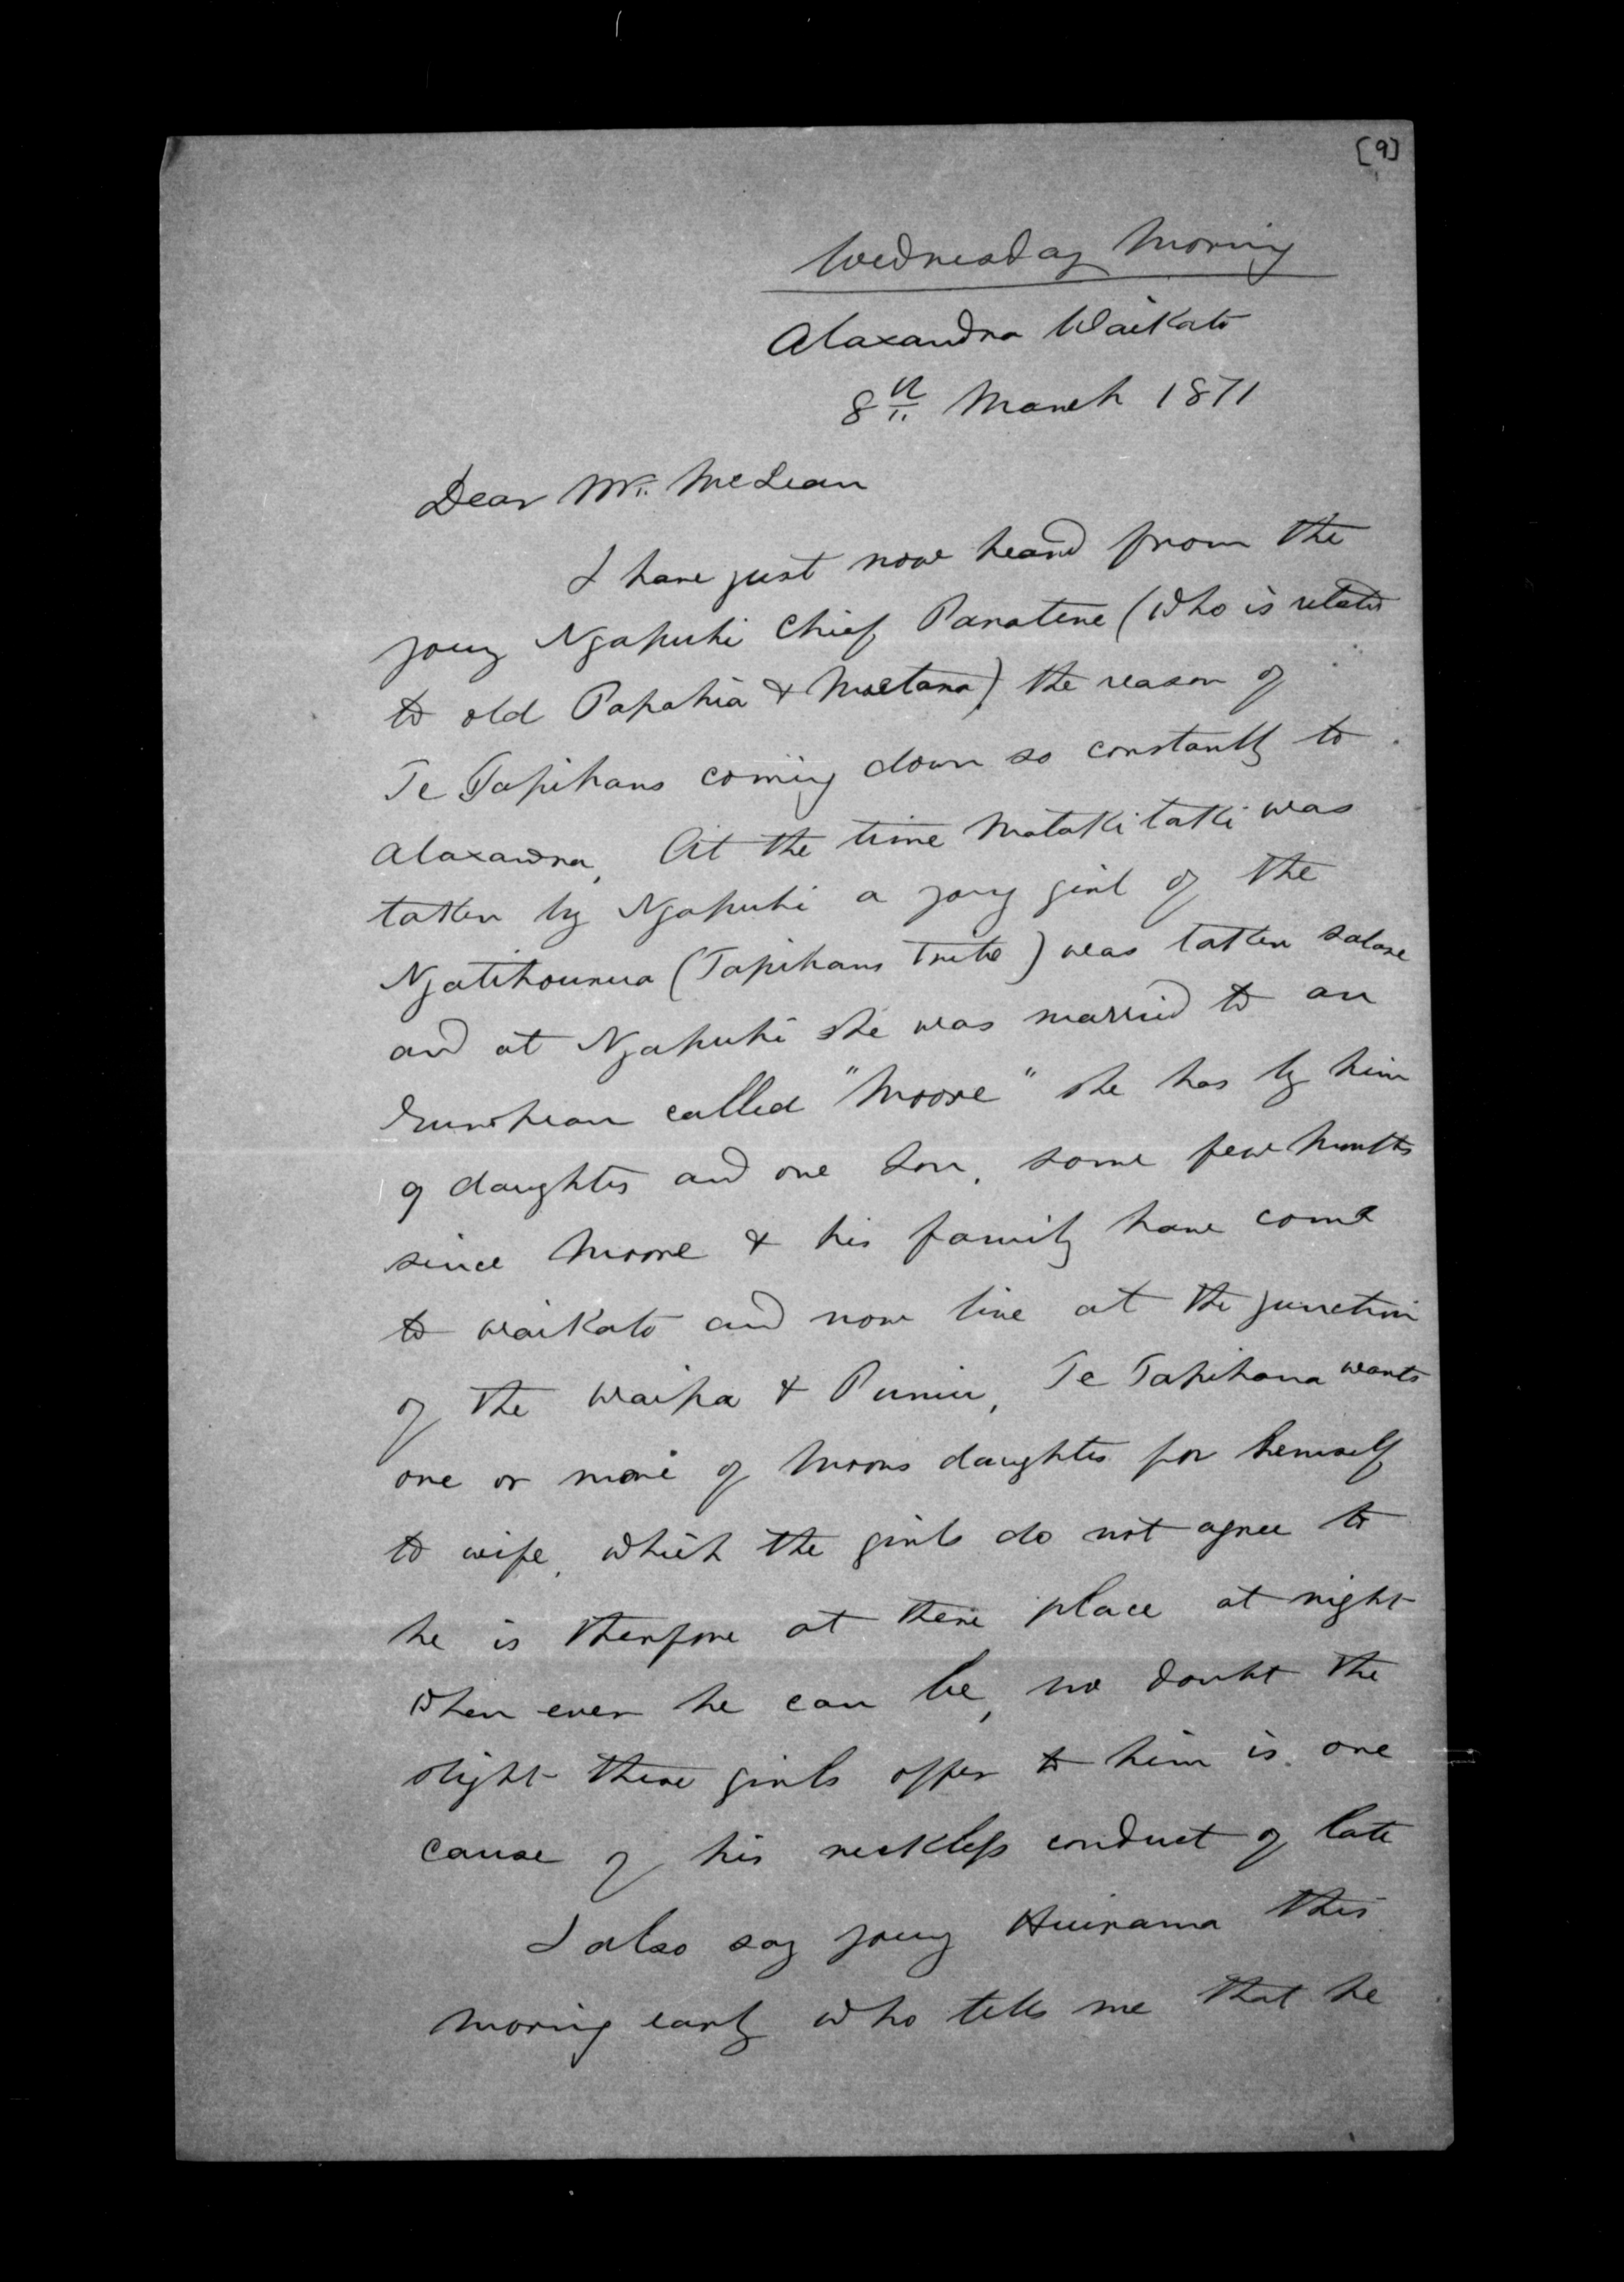 [9]
Wednesday Morning
Alaxandra Waikato
8th March 1871
Dear Mr. McLean
I have just now heard from the
young Ngapuhi Chief Paratene (who is related
to old Papahia & Moetara) the reason of
Te Tapihans coming down so constantly to
Alaxandra, At the time Matakitaki was
taken by Ngapuhi a young girl of the
Ngatihourua (Tapihans Tribe) was taken salave
and at Ngapuhi she was married to an
European called "Moore" she has by him
9 daughters and one son, some few months
since Moore & his family have come
to Waikato and now live at the junction
of the Waipa & Puniu, Te Tapihana wants
one or more of Moors daughters for hemself
to wife, which the girls do not agree to
he is therefore at there place at night
when ever he can be, no doubt the
slight these girls offer to him is one
cause of his reckless conduct of late
I also say young Huirama this
morning early who tells me that he